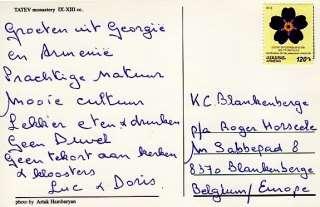 TATEV monastery IX-XIII cc.
Groeten uit Georgië
en Armenië
Prachtige natuur
Mooie cultuur
Lekker eten & drinken
Geen Duvel
Geen tekort aan kerken
& kloosters
Luc & Doris.
photo by Artak Hambaryan
120
KC Blankenberge
p/a Roger
8
8370 Blankenberge
Belgium/Europe